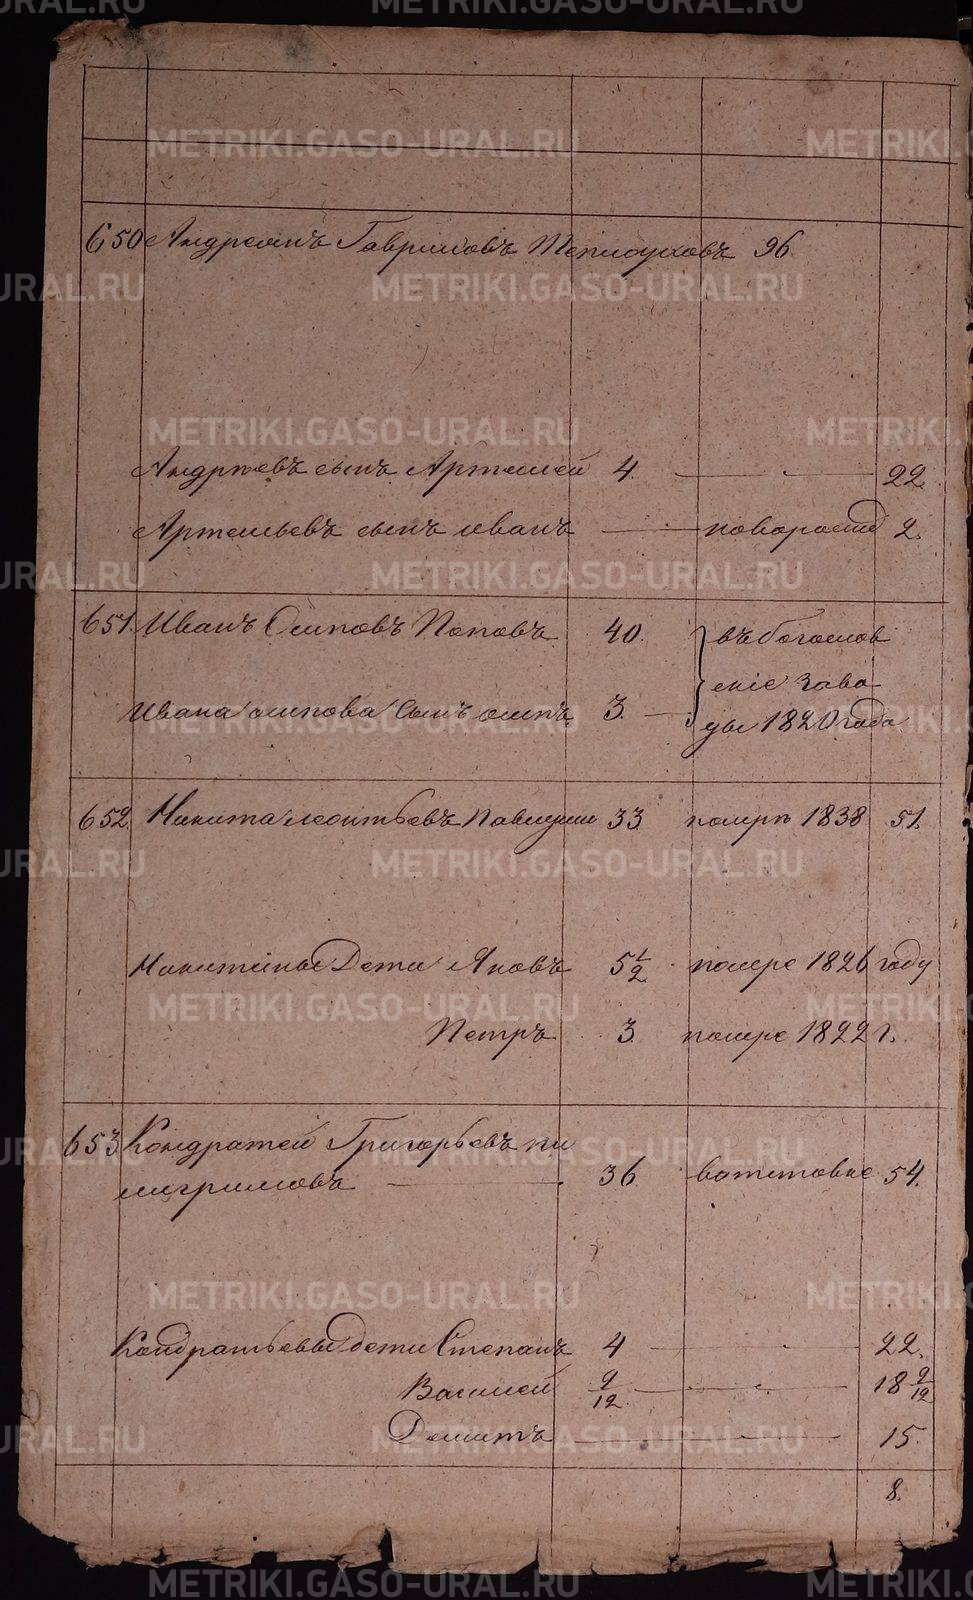 650 Андреанъ Гавриловъ Теплоуховъ 26
Андреевъ сынъ Артемей 4. 22.
Артемьевъ сынъ иванъ 2.
651. Иванъ Осиповъ Поповъ 40. въ богослов
скіе Заво
Ивана осипова Сынъ осипъ 3. ды 1820 года
652. Никита леонтьевъ 33 помре 1838 51.
Никитины Дети Яковъ 5 1/2 помре 1826 году
Петръ 3. помре 1822 г.
653 Кондратей Григорьевъ пи
лигримовъ 36. вотставке 54.
Кондратьевы дети Степанъ 4 22.
Василей 9/12 18 9/12
Демитъ 15.
8.
METRIKI.GASO-URAL.RU